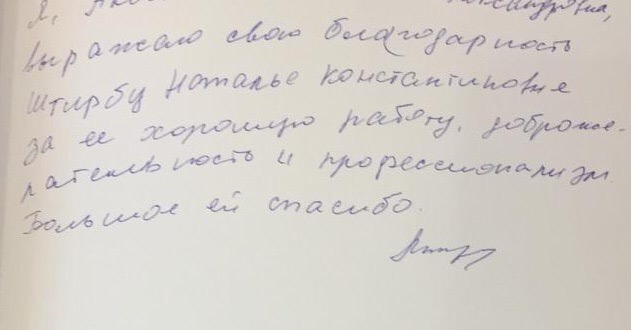 Я,
выражаю свою благодарность
Штирбу Наталье Константиновне
за ее хорошую работу, доброже-
лательность и профессионализм.
Большое ей спасибо.